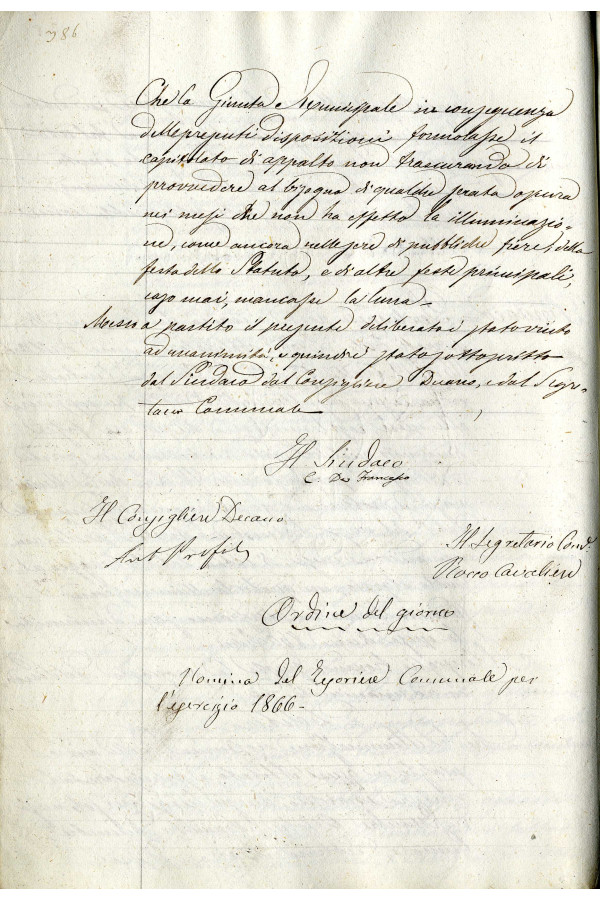 386
Che la Giunta Municipale in conseguenza
delle preputi disposizioni formolasse il
capitolato di appalto non trascurando di
provvedere al bisogno di qualche serata opura
nei mesi che non ha effetto la illuminazio-
ne, come ancora nelle sere di pubbliche fiere, della
festa dello Statuto, e di altre feste principali,
caso mai, mancasse la luna -
Messo a partito il presente deliberato è stato vinto
ad unanimità, e quindi è stato sottoscritto
dal Sindaco dal Consigliere Decano, e dal Segre-
tario Comunale
Il Sindaco
C. De Francesco
Il Consigliere Decano
Ant Profil
Il Segretario Com.
Rocco Cavalieri
Ordine del giorno
Nomina del Esoriere Comunale per
l'esercizio 1866 -